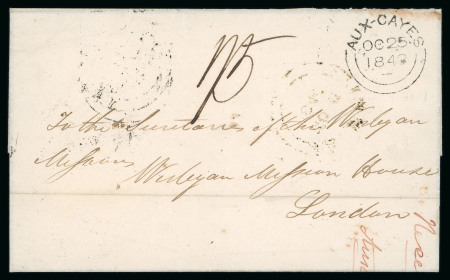 AUX-CAYES
OC 25
1849
1/5
To the Secretaries of the Wesleyan
Missions Wesleyan Mission House
London